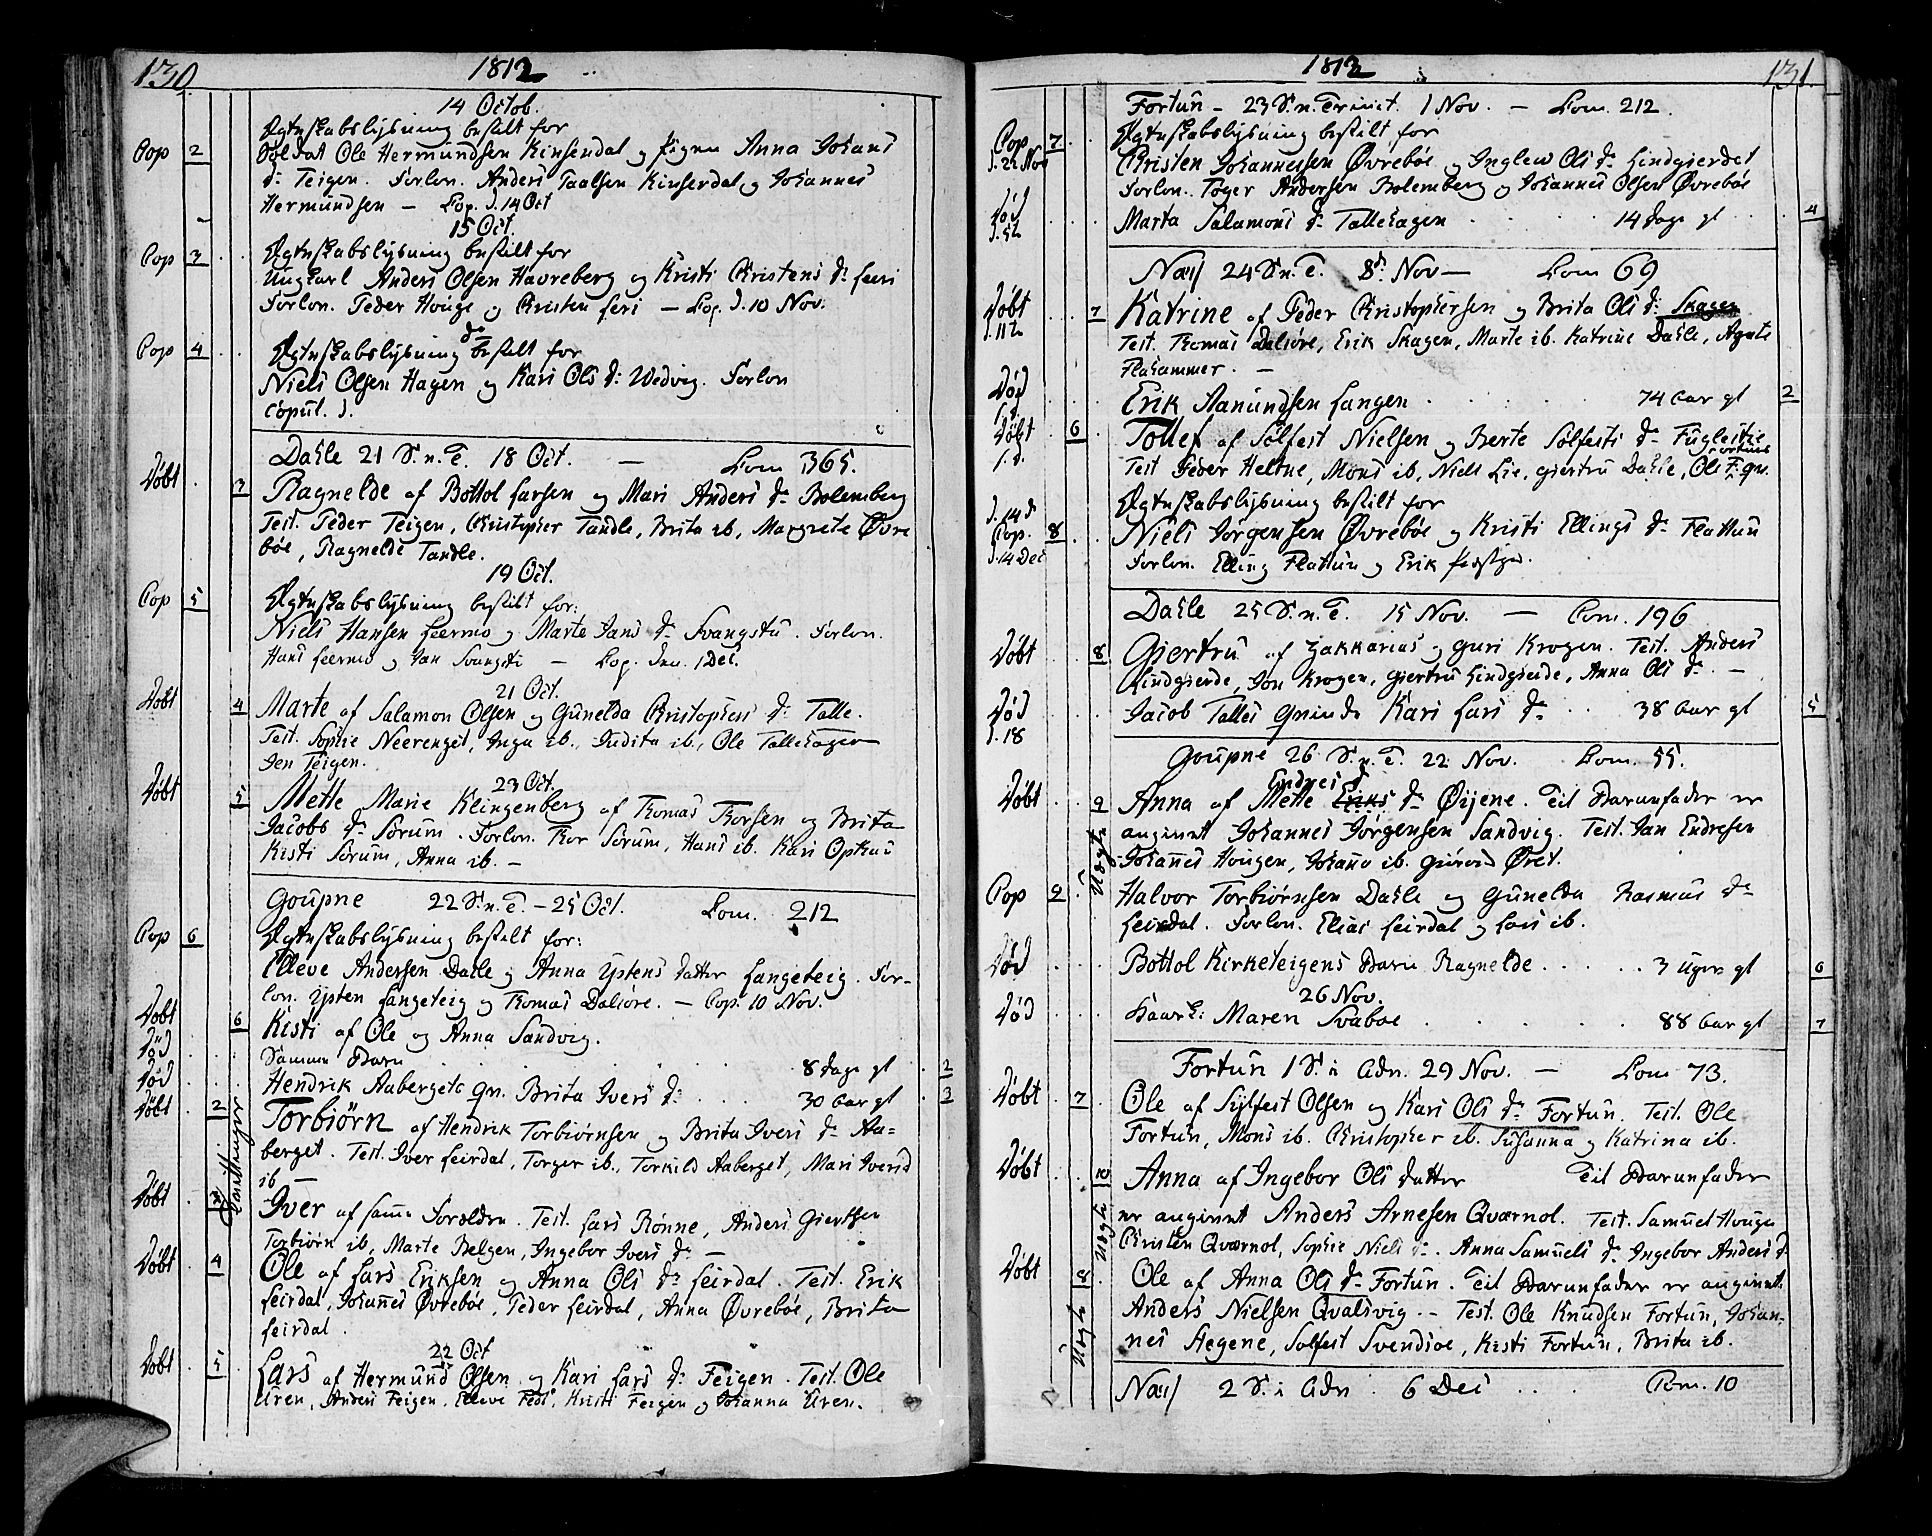 130
1812
14 Octob.
Ægteskabslysning bestilt for
Cop 2 Soldat Ole Hermundsen Kinserdal og Pigen Anna Johans
dr Teigen. Forlov. Anders Paalsen Kinserdal og Johannes
Hermundsen — Cop. d. 14 Oct
15 Oct.
Cop 3 Ægteskabslysning bestilt for
Ungkarl Anders Olsen Havreberg og Kristi Kristens dr Leri
Forlov. Peder Houge og Kristen Leri — Cop. d. 10 Nov.
do
Cop 4 Ægteskabslysning bestilt for
Niels Olsen Hagen og Kari Ols dr Wedvig. Forlov
Copul. d.
Dahle 21 S. n. T. 18 Oct. — Com 365.
Døbt 3 Ragnelde af Bottol Larsen og Mari Anders dr Bolemberg
Test. Peder Teigen, Christopher Tandle, Brita ib, Margrete Øvre
bøe, Ragnelde Tandle.
19 Oct.
Cop 5 Ægteskabslysning bestilt for:
Niels Hansen Leermo og Marte Jans dr Svangstu. Forlov.
Hans Leermo og Jan Svangsti — Cop. den 1 Dec.
21 Oct.
Døbt 4 Marte af Salamon Olsen og Gunelda Christophers dr Talle.
Test. Sophie Neerenget, Inga ib., Judita ib., Ole Tallehagen
Jen Teigen.
23 Oct.
Døbt 5 Mette Marie Klingenberg af Thomas Thorsen og Brita
Jacobs dr Sørum. Forlov. Thor Sørum, Hans ib. Kari Opthus
Kisti Sørum, Anna ib. —
Goupne 22 S. n. T. — 25 Oct. Com. 212
Cop 6 Ægteskabslysning bestilt for:
Elleve Andersen Dahle og Anna Ystens datter Langeteig. For-
lov. Ysten Langeteig og Thomas Dalsøre. — Cop. 10 Nov.
Døbt 6 Kisti af Ole og Anna Sandvig.
Død Samme Barn 8 dage gl 2
Død Hendrik Aabergets qv. Brita Ivers dr 30 aar gl 3
Døbt 2 Torbiørn af Hendrik Torbiørnsen og Brita Ivers dr Aa-
berget. Test. Iver Leirdal, Torger ib., Torkild Aaberget, Mari Ivers d
ib —
Døbt 3 Iver af samme Forældre. Test. Lars Rønne, Anders Giertsen
Torbiørn ib, Marte Belgen, Ingebor Ivers dr —
Døbt 4 Ole af Lars Eriksen og Anna Ols dr Leirdal. Test. Erik
Leirdal, Johannes Øvrebøe, Peder Leirdal, Anna Øvrebøe, Brita
Leirdal.
22 Oct
Døbt 5 Lars af Hermund Olsen og Kari Lars dr Feigen. Test. Ole
Uren, Anders Feigen, Elleve Feds, Kristi Feigen og Johanna Uren.
1812
131.
Fortun — 23 S. n. Trinit. 1 Nov. — Com. 212.
Cop 7 Ægteskabslysning bestilt for
d. 22 Nov Christen Johannessen Øvrebøe og Inglew Ols dr Lindgierdet
Forlov. Toger Andersen Bolemberg og Johannes Olsen Øvrebøe
Død Marta Salamons dr Tallehagen 14 dage gl 4
d. 5te
Næs 24 S n. T. 8de Nov — Com 69
Døbt 7 Katrine af Peder Christophersen og Brita Ols dr Skagen
d. 11te Test. Thomas Dalsøre, Erik Skagen, Marte ib. Katrine Dahle, Agate
Flahammer. —
Død Erik Aamundsen Langen 74 aar gl 2
Døbt 6 Tollef af Sølfest Nielsen og Berte Sølfests dr Fuglestie
Test Peder Heltne, Mons ib, Niels Lie, Giertru Dahle, Ols Fortuns qv.
Ægteskabslysning bestilt for
Cop. 8 Niels Jørgensen Øvrebøe og Kristi Ellings dr Flattun
d. 14 Dec Forlov. Elling Flattun og Erik
Dahle 25 S. n. T. 15 Nov. — Com. 196
Døbt 8 Giertru af Zakkarias og Guri Krogen. Test. Anders
Lindgierde, Jon Krogen, Giertru Lindgierde, Anna Ols dr —
Død Jacob Talles Qvinde Kari Lars dr 38 aar gl 5
d. 18
Goupne 26 S. n. T. 22 Nov. Com. 55.
Endres d
Døbt 9 Anna af Mette Eriks dr Øijene. Til Barnefader er
angivet Johannes Jørgensen Sandvig. Test. Jan Endresen
Johannes Hougen, Johana ib. Gurond Øret.
Uægte
Cop 9 Halvor Torbiørnsen Dahle og Gunelda Rasmus dr
Leirdal. Forlov. Elias Leirdal og Lars ib.
Død Bottol Kirketeigens Barn Ragnelde 3 uger gl 6
26 Nov.
Død Maren Svaboe 88 aar gl 7
Fortun 1 S. i Adv. 29 Nov. — Com 73.
Døbt 7 Ole af Sylfest Olsen og Kari Ols dr Fortun. Test. Ole
Fortun, Mons ib. Christopher ib. Susanna og Katrina ib.
Døbt 10 Anna af Ingebor Ols datter Til Barnefader
Uægte er angivet Anders Arnesen Qværnol. Test. Samuel Hougen
Christen Qværnol, Sophie Niels dr. Anna Samuels dr Ingebor Anders d
Døbt 8 Ole af Anna Ols dr Fortun. Til Barnefader er angivet
Uægte Anders Nielsen Qvalsvig. — Test. Ole Knudsen Fortun, Johan-
nes Hegene, Sølfest Svendsøe, Kisti Fortun, Brita ib.
Næs 2 S. i Adv. 6 Dec Com. 10